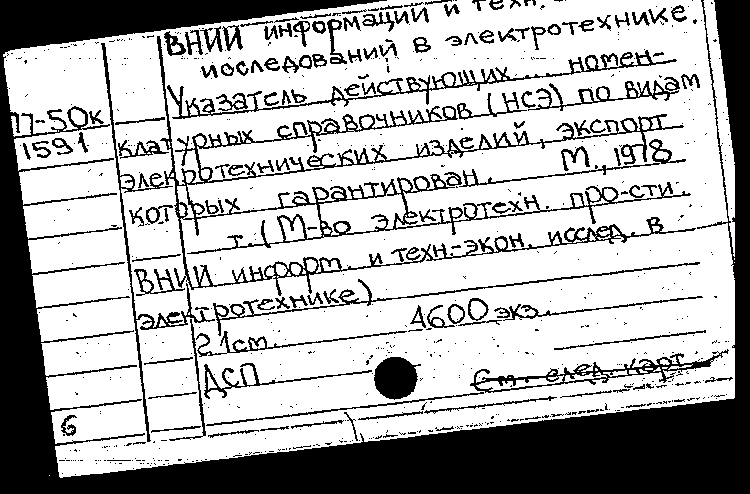 ВНИИ информации и техн.
исследований в электротехнике.
Указатель действующих ... номен-
П-50к
1591
клатурных справочников (НСЭ) по видам
электротехнических изделий, экспорт
которых гарантирован. М., 1978
т. (М-во электротехн. про-сти.
ВНИИ информ. и техн.-экон. исслед. в
электротехнике)
21см. 4600 экз.
ДСП.
См. след. карт
6